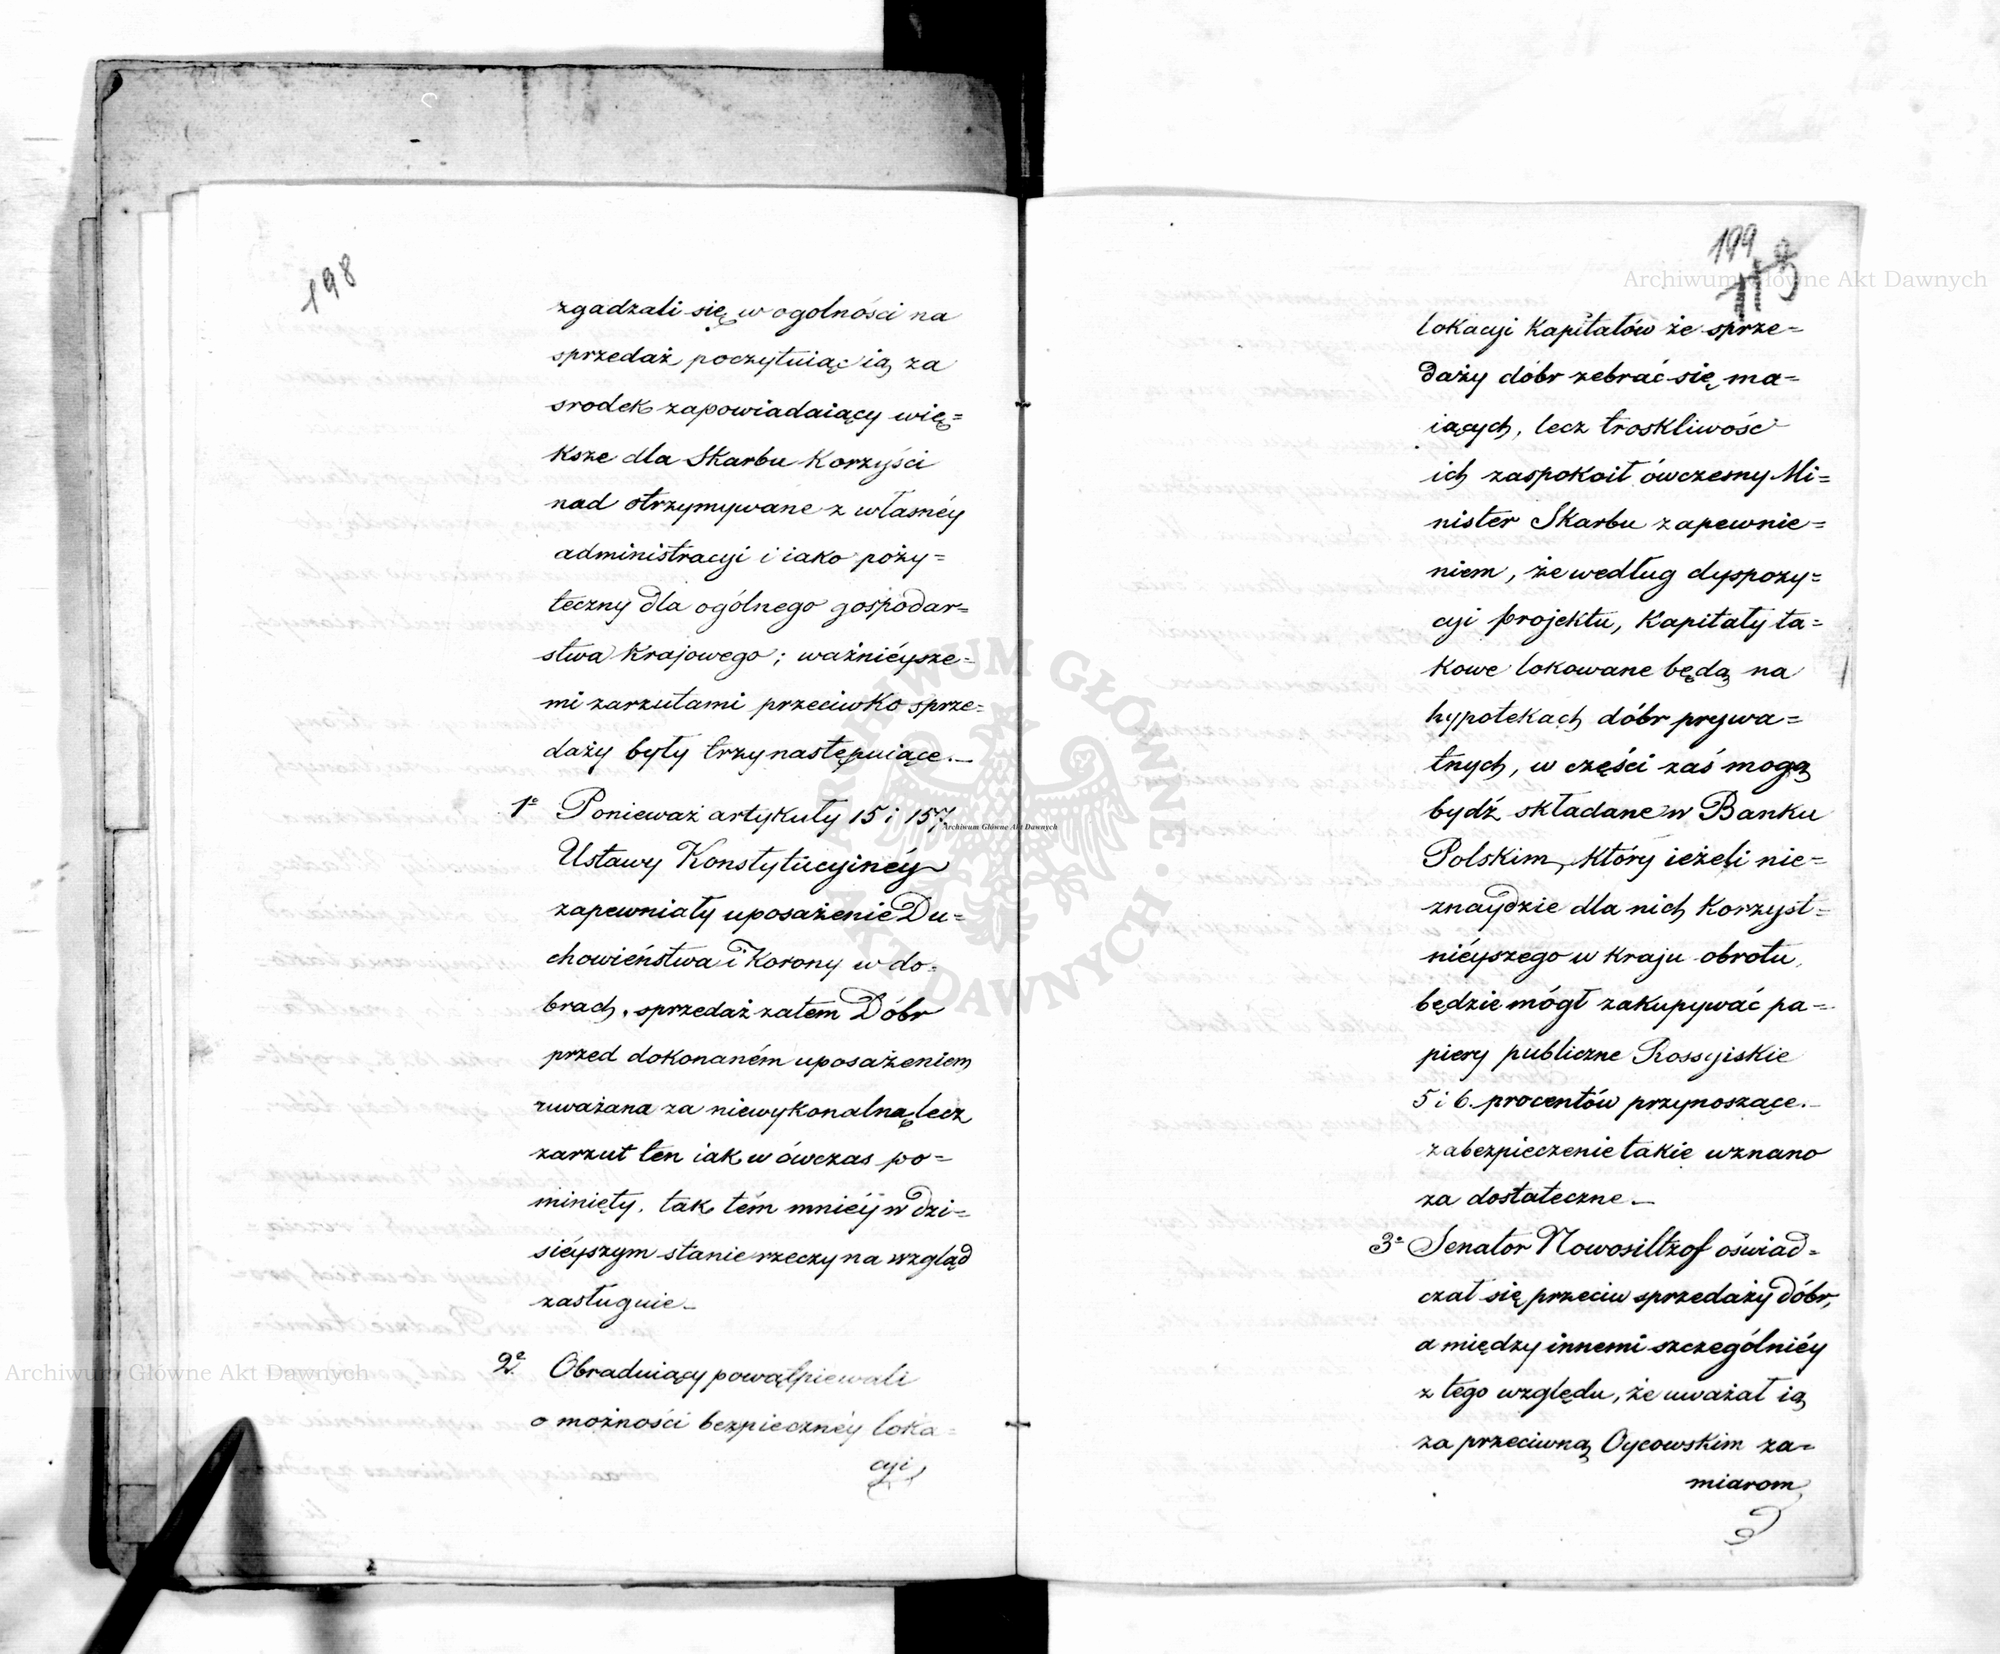 198
zgadzali się w ogolności na
sprzedaż poczytuiąc ią za
srodek zapowiadaiący wię=
ksze dla Skarbu Korzyści
nad otrzymywane z własnéy
administracyi i iako poży=
teczny dla ogólnego gospodar=
stwa Krajowego; ważnieysze=
mi zarzutami przeciwko sprze=
daży były trzy następuiące._
1e Ponieważ artykuły 15 i 157.
Ustawy Konstytucyinéy
zapewniały uposażenie Du=
chowieństwa i Korony w do=
brach, sprzedaż zatem Dóbr
przed dokonaném uposażeniem
uważana za niewykonalną lecz
zarzut ten iak wówczas po=
minięty, tak tém mniéy w dzi=
siéyszym stanie rzeczy na wzgląd
zasługuie_
2e Obraduiący powątpiewali
o możności bezpiecznéy loka=
cyi
199
113
lokacyi Kapitałów ze sprze=
daży dóbr zebrać się ma=
iących, lecz troskliwość
ich zaspokoił ówczesny Mi=
nister Skarbu zapewnie=
niem, że według dyspozy=
cyi projektu, Kapitały ta=
kowe lokowane będą na
hypotekach dóbr prywa=
tnych, w części zaś mogą
bydź składane w Banku
Polskim, który ieżeli nie=
znaydzie dla nich Korzyst=
niéyszego w Kraju obrotu,
będzie mógł zakupywać pa=
piery publiczne Rossyiskie
5 i 6. procentów przynoszące._
zabezpieczenie takie uznano
za dostateczne_
3e Senator Nowosiltzof oświad=
czał się przeciw sprzedaży dóbr,
a między innemi szczególniéy
z tego względu, że uważał ią
za przeciwną Oycowskim za=
miarom
Archiwum Główne Akt Dawnych
Archiwum Główne Akt Dawnych
Archiwum Główne Akt Dawnych
ARCHIWUM GŁÓWNE AKT DAWNYCH